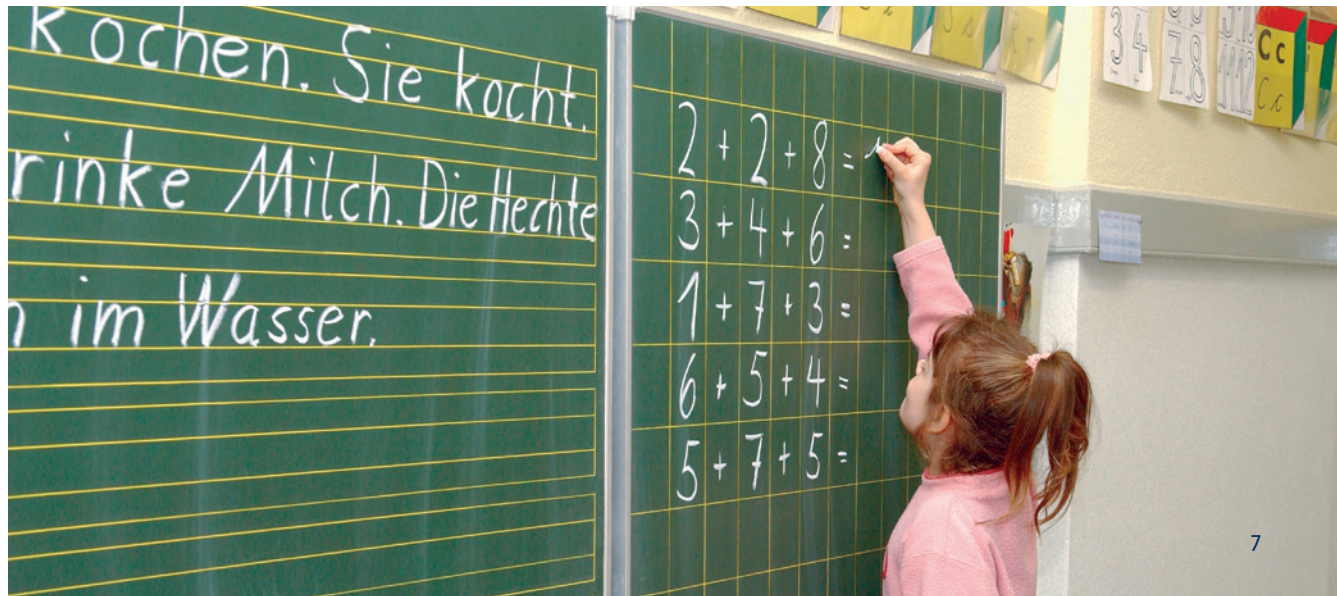 kochen. Sie kocht.
rinke Milch. Die Hechte
n im Wasser.
2 + 2 + 8 =
3 + 4 + 6 =
1 + 7 + 3 =
6 + 5 + 4 =
5 + 7 + 5 =
3 4
7 8
11 12
C c
7